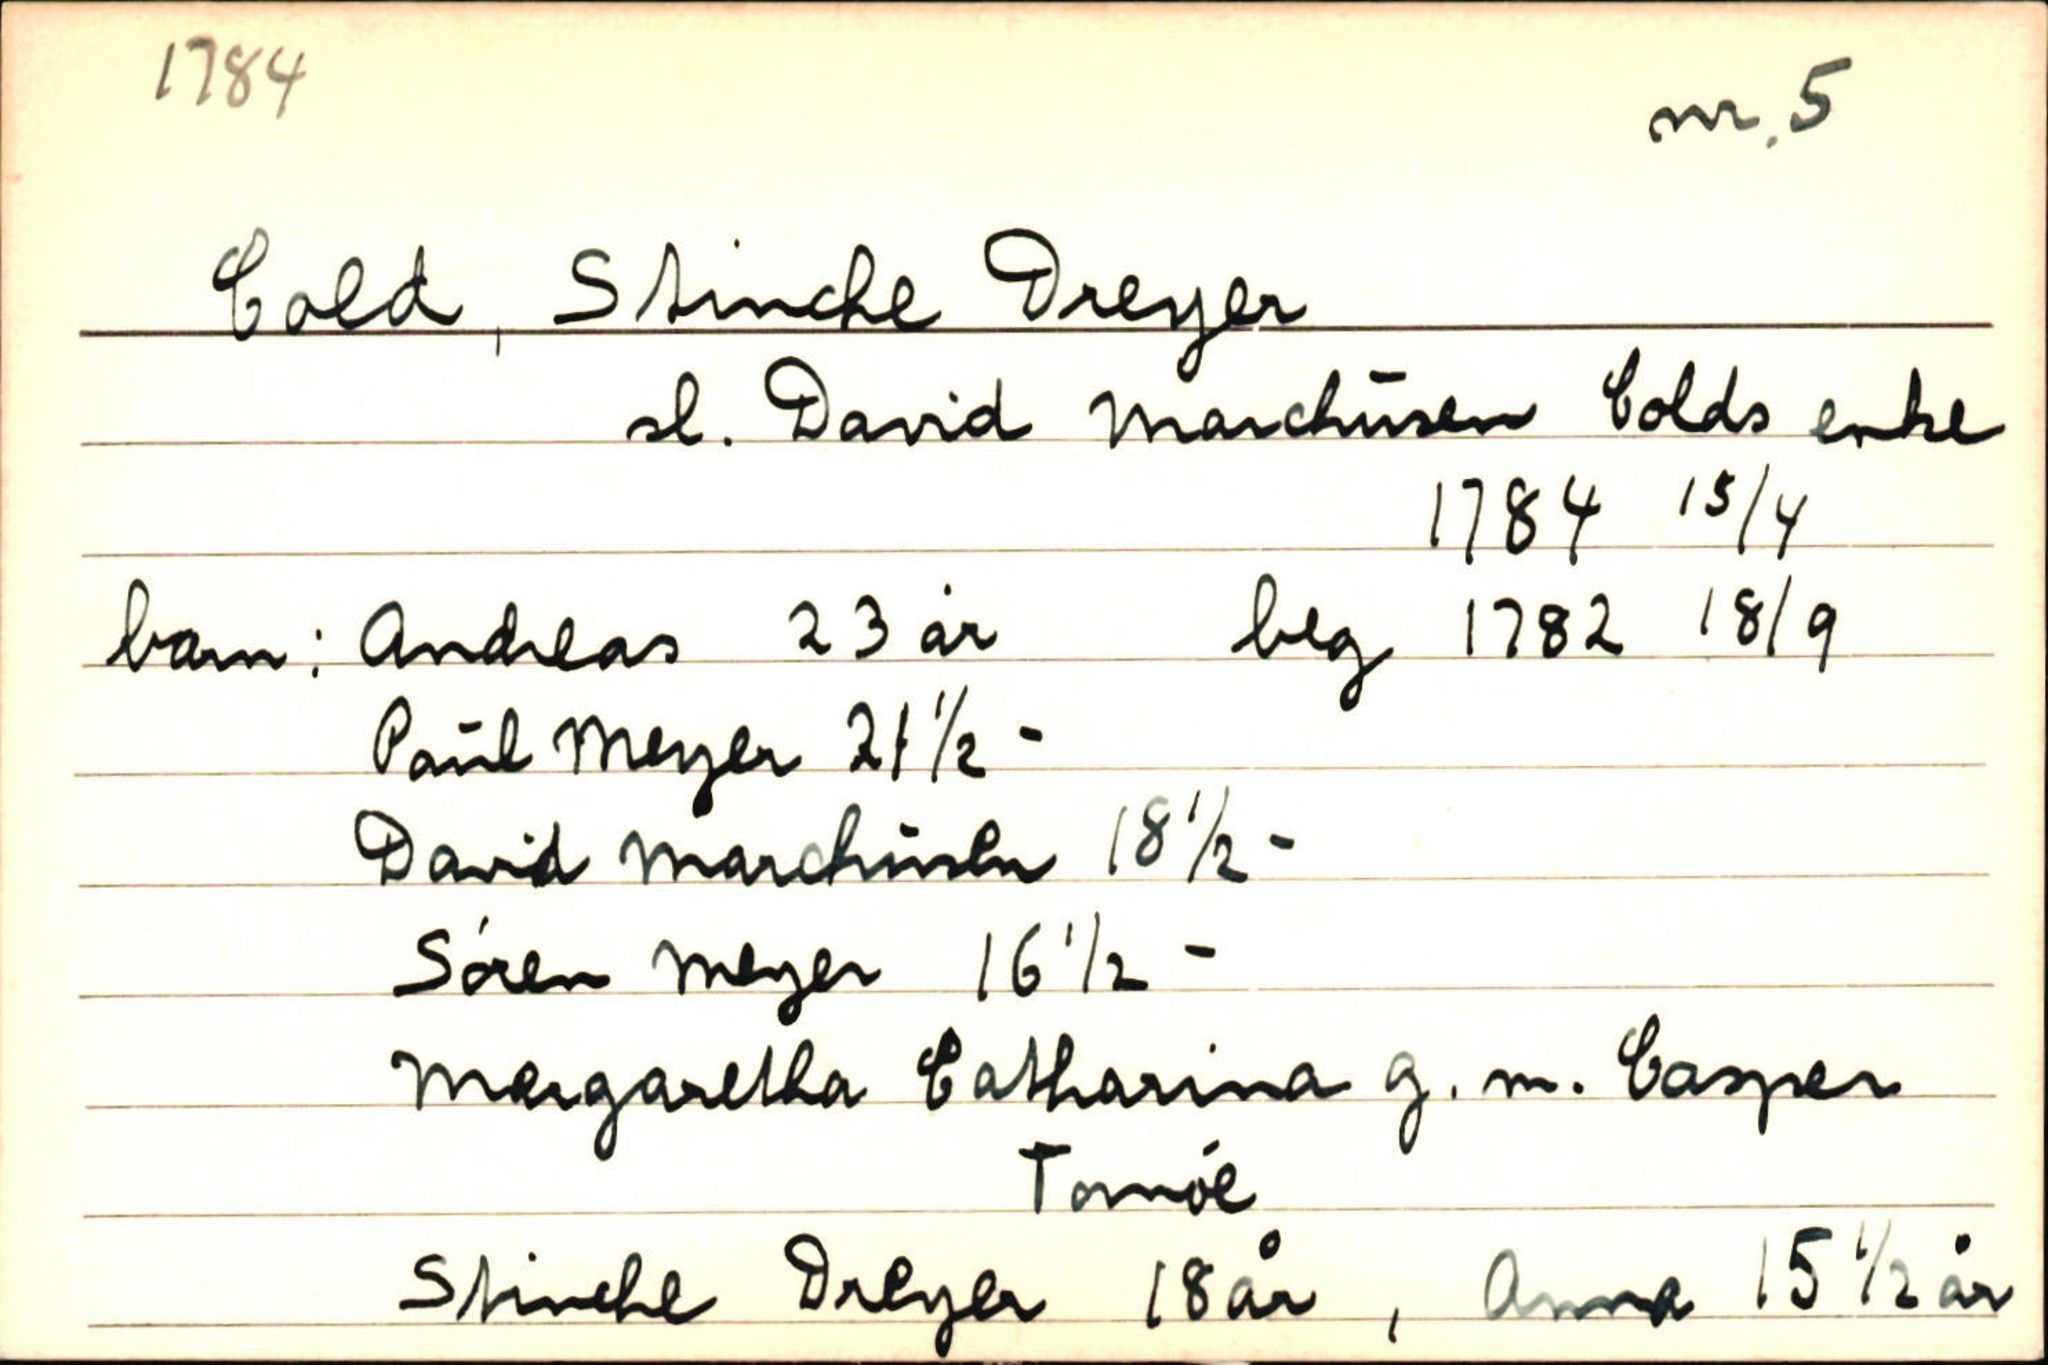 1784
nr. 5
Cold, Stinche Dreyer
sl. David Marchūsen Colds enke
1784 15/4
barn: Andreas 23 år beg 1782 18/9
Paūl Meyer 21 1/2 -
David Marchūsen 18 1/2 -
Sören Meyer 16 1/2 -
Margaretha Catharina g. m. Casper
Tornöe
Stinche Dreyer 18 år, Anna 15 1/2 år